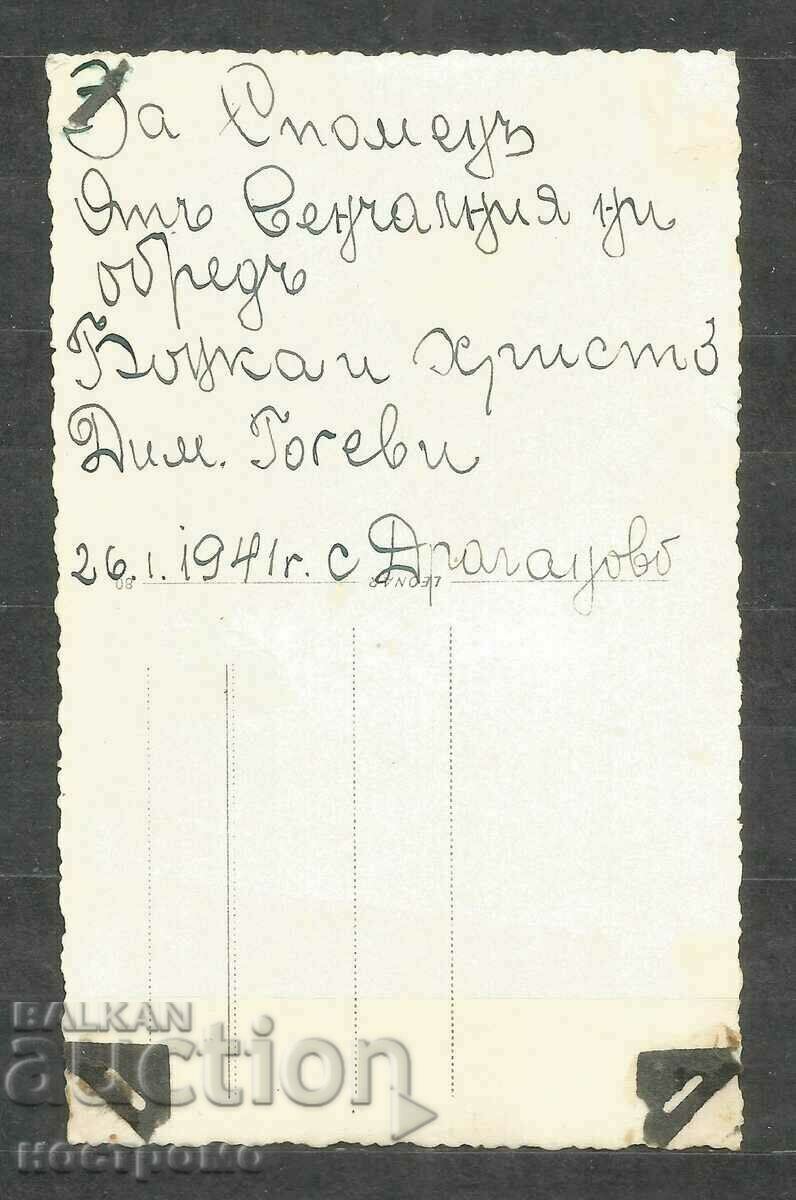 За Споменъ
Отъ Венчалния ни
обредъ
Бонка и Христо
Дим. Гогеви
26.I.1941г. с Драганово
LEONAR
BALKAN
auction
костромо